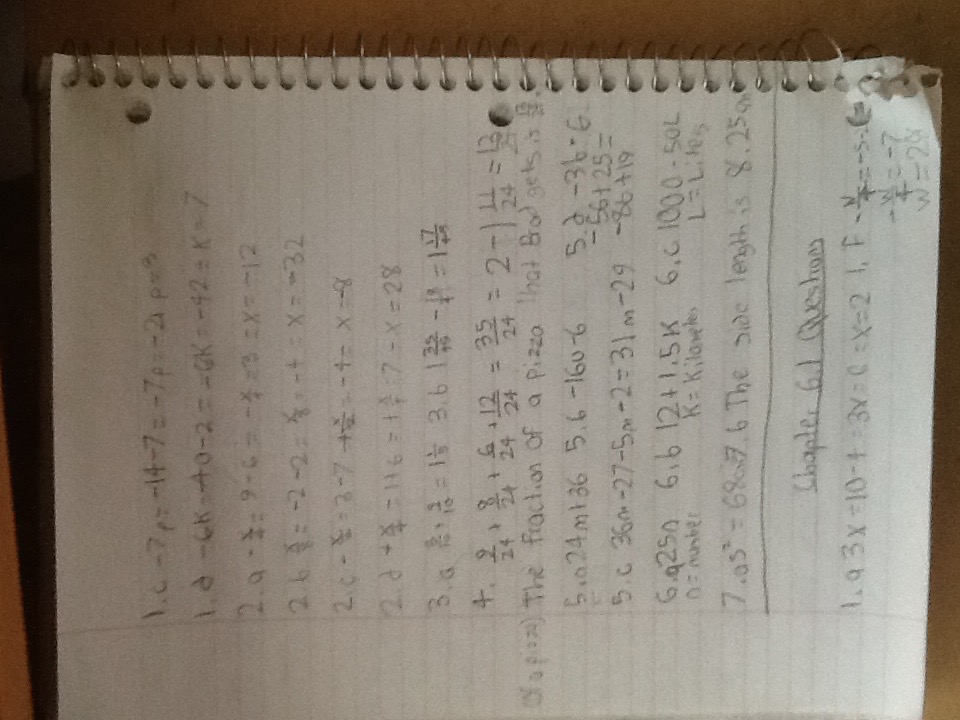 1.c -7p = -14-7 = -7p = -21 p=3
1.d -6K = -40-2 = -6K = -42 = K = 7
2.a -x/4 = 9-6 = -x/4 = 3 = x = -12
2.b x/8 = -2-2 = x/8 = -4 = x = -32
2.c - = 3-7 = -4 = x = -8
2.d +x/4 = 1+6 = + 7 - x = 28
3.a = 1 3.b 1 = 1
4. 9/24 + 8/24 + 6/24 + 12/24 = 35/24 = 2-1 11/24 = 13/24
(of a pizza) The fraction of a pizza that Brad gets is
5.a 24m+36 5.b -16u-6 5.d -3b-6
-5b+25 =
5.c 36m-27-5m-2 = 31m-29 -8b+19
6.a 25n 6.b 12+1.5K 6.c 1000-50L
n = number K = Kilometer L = Lites
7.a s² = 68 7.b The side length is 8.25cm
Chapter 6.1 Questions
1.a 3x = 10-4 = 3x = 6 = x = 2 1.F -w/4 = -5-
-w/4 = -7
w = 28